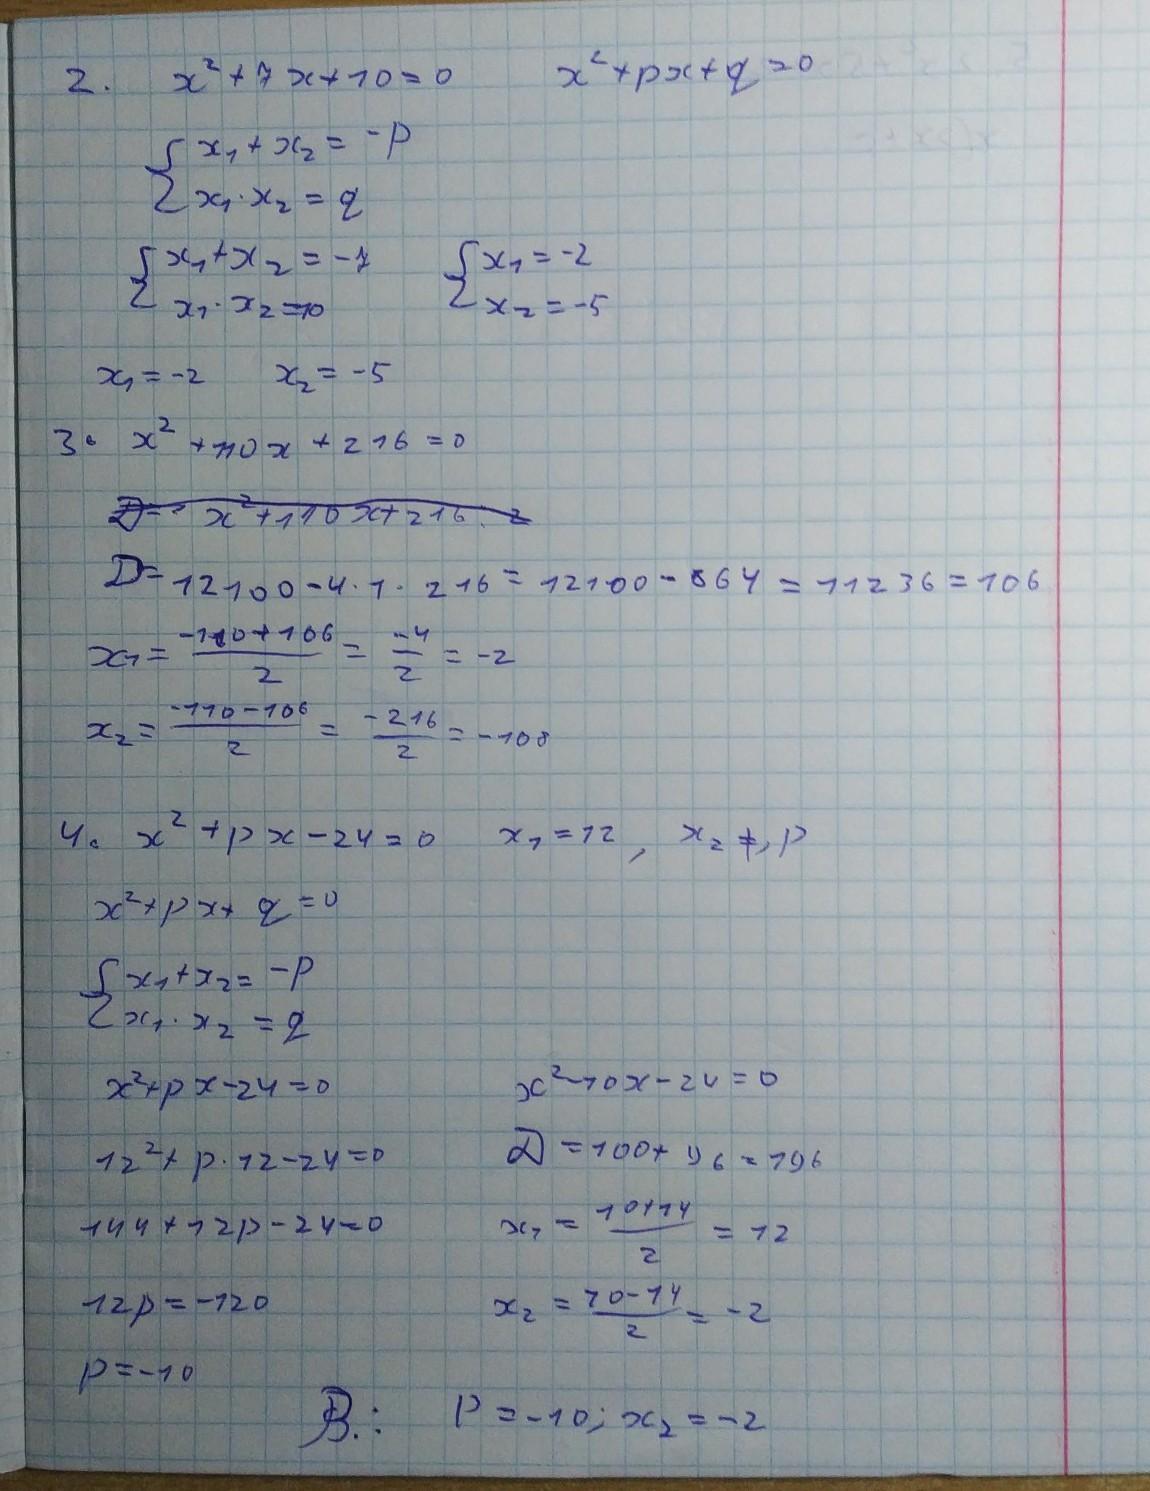 2. x² + 7x + 10 = 0 x² + px + q = 0
{ x₁ + x₂ = -p
x₁ · x₂ = q
{ x₁ + x₂ = -7 { x₁ = -2
x₁ · x₂ = 10 x₂ = -5
x₁ = -2 x₂ = -5
3. x² + 110x + 216 = 0
D = x² + 110x + 216 · 2
D = 12100 - 4 · 1 · 216 = 12100 - 864 = 11236 = 106
x₁ = (-110 + 106)/2 = -4/2 = -2
x₂ = (-110 - 106)/2 = -216/2 = -108
4. x² + px - 24 = 0 x₁ = 12, x₂ , p
x² + px + q = 0
{ x₁ + x₂ = -p
x₁ · x₂ = q
x² + px - 24 = 0 x² - 10x - 24 = 0
12² + p · 12 - 24 = 0 D = 100 + 96 = 196
144 + 12p - 24 = 0 x₁ = (10 + 14)/2 = 12
12p = -120 x₂ = (10 - 14)/2 = -2
p = -10
В.: p = -10; x₂ = -2